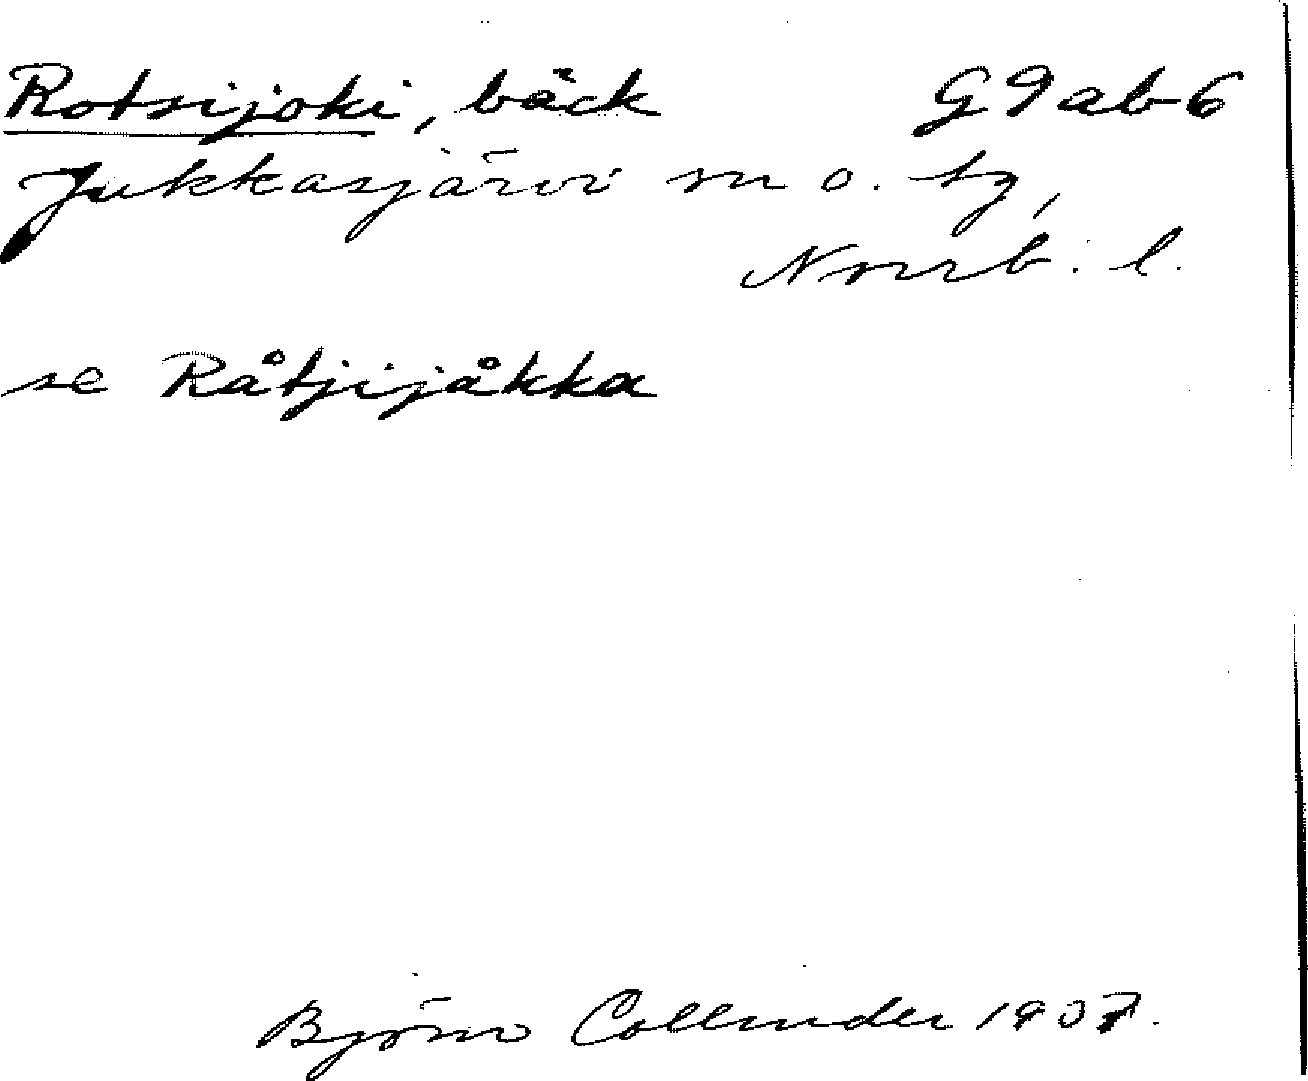 Rotsijoki, bäck G9ab6
Jukkasjärvi sn o. tg,
Norrb. l.
se Råtjijåkka
Björn Collinder 1907.